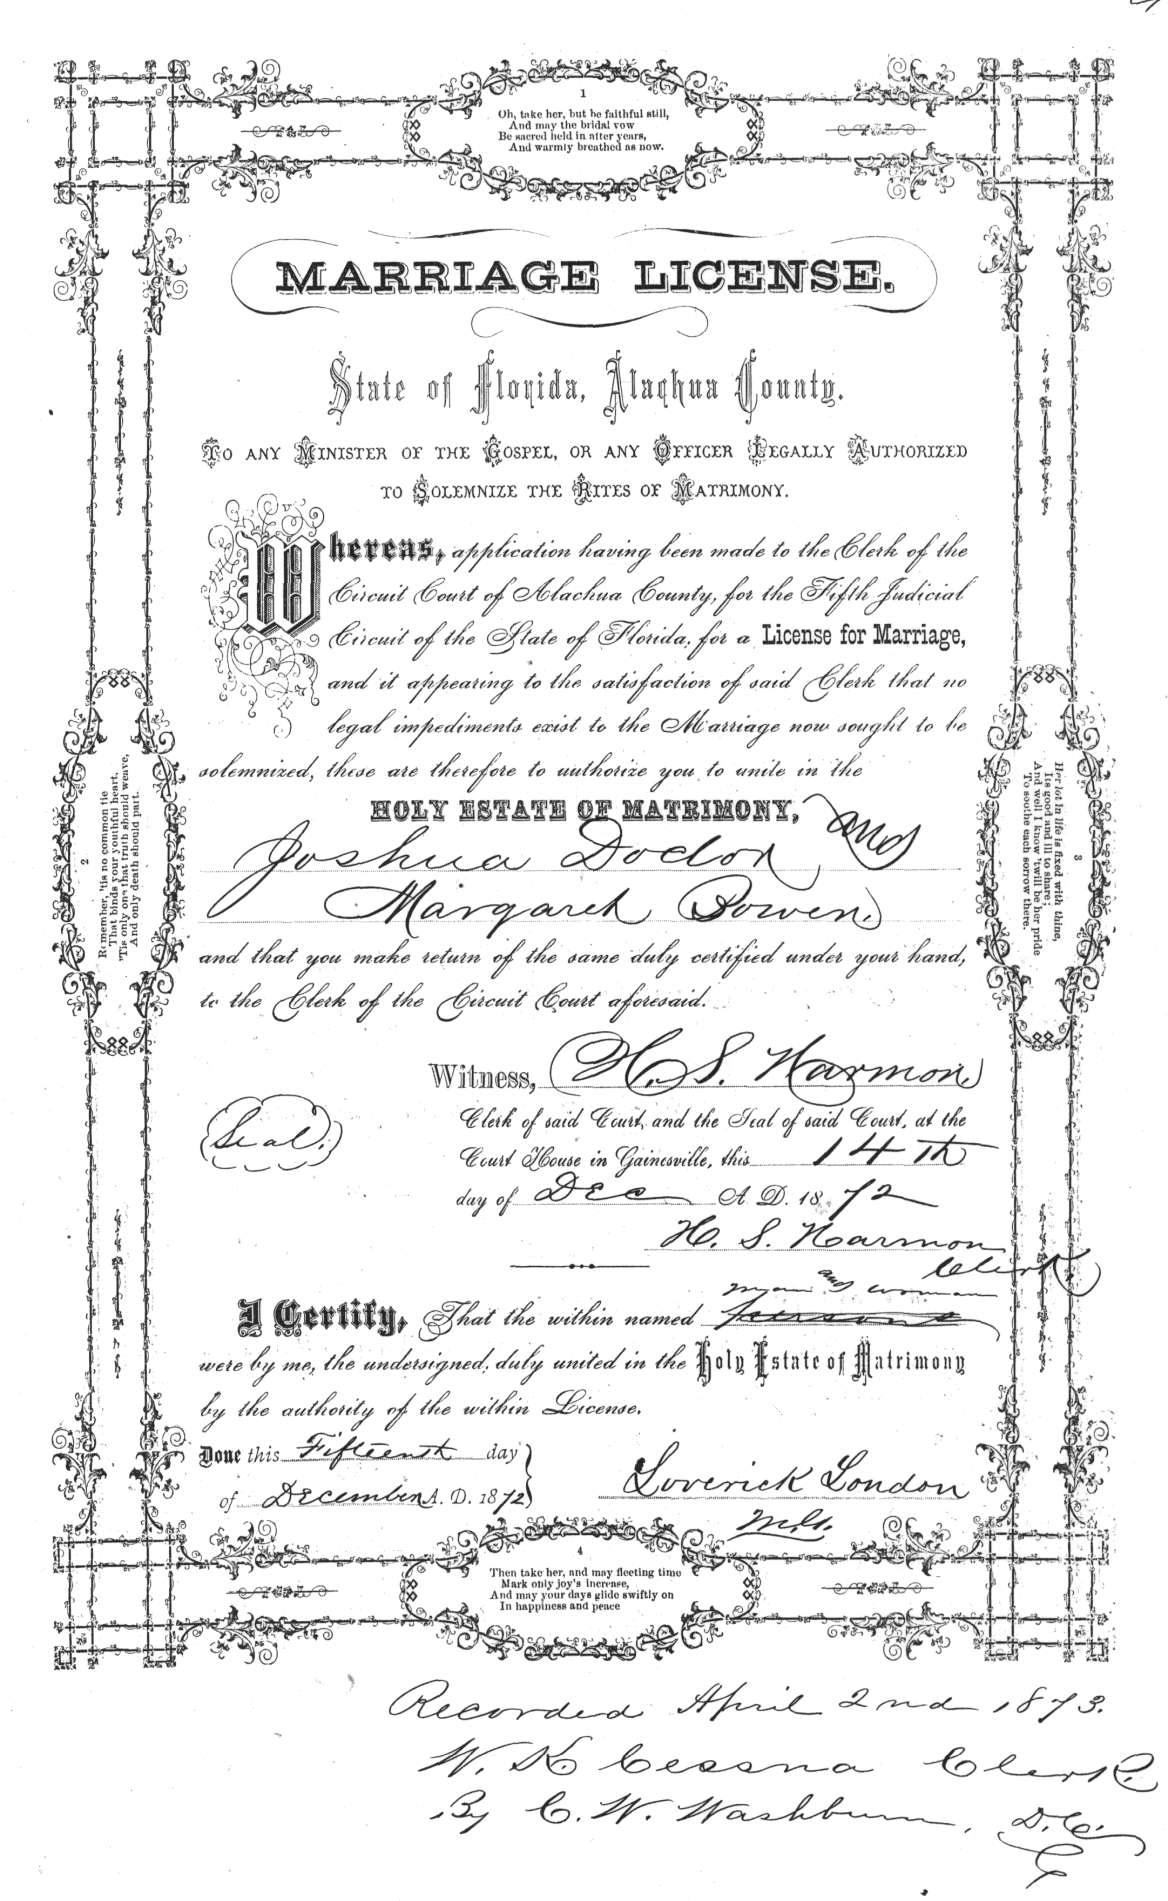 1
Oh, take her, but be faithful still,
And may the bridal vow
Be sacred held in after years,
And warmly breathed as now.
MARRIAGE LICENSE.
State of Florida, Alachua County.
To any Minister of the Gospel, or any Officer Legally Authorized
to Solemnize the Rites of Matrimony.
Whereas, application having been made to the Clerk of the
Circuit Court of Alachua County, for the Fifth Judicial
Circuit of the State of Florida, for a License for Marriage,
and it appearing to the satisfaction of said Clerk that no
legal impediments exist to the Marriage now sought to be
solemnized, these are therefore to authorize you to unite in the
HOLY ESTATE OF MATRIMONY,
Joshua Doctor and
Margaret Bowen.
and that you make return of the same duly certified under your hand,
to the Clerk of the Circuit Court aforesaid.
2
Remember, 'tis no common tie
That binds your youthful heart,
'Tis only one that truth should weave,
And only death should part.
3
Her lot in life is fixed with thine,
Its good and ill to share;
And well I know 'twill be her pride
To soothe each sorrow there.
Witness, H. S. Harmon
Clerk of said Court, and the Seal of said Court, at the
Seal.
Court House in Gainesville, this 14th
day of Dec A. D. 1872
H. S. Harmon
Clerk
man and woman
I Certify, That the within named persons
were by me, the undersigned, duly united in the Holy Estate of Matrimony
by the authority of the within License.
Done this Fifteenth day
of December A. D. 1872
Loverick London
M.G.
4
Then take her, and may fleeting time
Mark only joy's increase,
And may your days glide swiftly on
In happiness and peace
Recorded April 2nd 1873.
W. K. Cessna Clerk.
By C. W. Washburn, D.C.